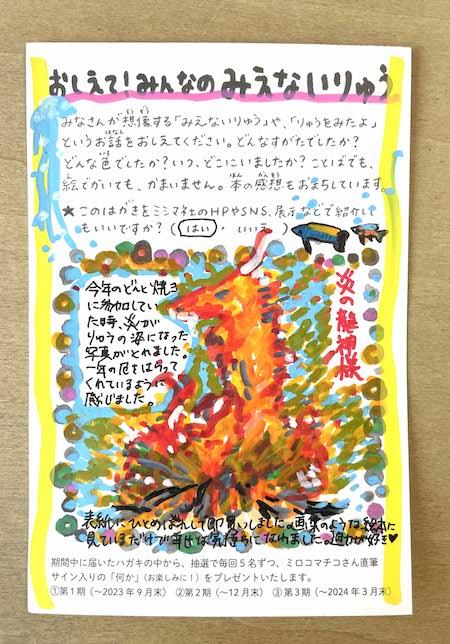 おしえて！みんなのみえないりゅう
みなさんが想像する「みえないりゅう」や、「りゅうをみたよ」
というお話をおしえてください。どんなすがたでしたか？
どんな色でしたか？いつ、どこにいましたか？ことばでも、
絵でかいても、かまいません。本の感想もおまちしています。
★このはがきをミシマ社のHPやSNS、展示などで紹介して
もいいですか？（はい・いいえ）
炎の龍神様
今年のどんと焼き
に参加してい
た時、炎が
りゅうの姿になった
写真がとれました。
一年の厄をはらって
くれているように
感じました。
表紙にひとめぼれして即買いしました。画集のような絵本に
見ているだけで幸せな気持ちになれました。迫力が好き♥
期間中に届いたハガキの中から、抽選で毎回５名ずつ、ミロコマチコさん直筆
サイン入りの「何か」（お楽しみに！）をプレゼントいたします。
①第１期（〜2023年９月末）②第２期（〜12月末）③第３期（〜2024年３月末）